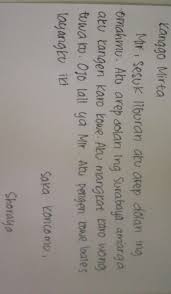 Kanggo Mirta
Mir, Sesuk liburan aku arep dolan ing
omahmu. Aku arep dolan ing Surabaya amarga
aku kangen karo kowe. Aku mangkat karo wong
tuwaku. Ojo lali ya Mir Aku pengen kowe bales
layangku iki
Saka Koncomu,
Shoraya